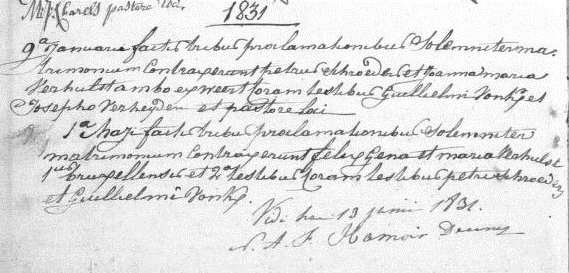 pastore loci
1831
9a januarii factis tribus proclamationibus Solemniter ma-
trimonium Contraxerunt petrus schroeder et Joanna maria
Verhulst ambo ex neert Coram testibus Guillielmi Vonk et
Josepho Verheyden et pastore loci
1a factis tribus proclamationibus Solemniter
matrimonium Contraxerunt felix Gena et maria
1us bruxellensis et 2a testibus Coram testibus petri schroeder
et Guillielmi Vonk.
Vidi hac 13 junii 1831.
N. A. F. Hamoir